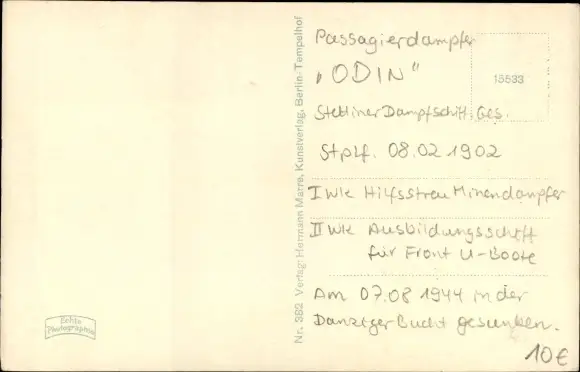 Passagierdampfer
„ODIN"
15533
Stettiner Dampfschiff. Ges.
Stplf. 08.02 1902
I WK Hilfsstreu Minendampfer
II WK Ausbildungsschiff
für Front U-Boote
Am 07.08 1944 in der
Danziger Bucht gesunken.
10€
Nr. 382 Verlag: Hermann Marre, Kunstverlag, Berlin-Tempelhof
Echte
Photographie